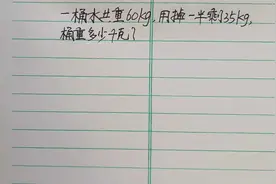 一桶水共重60kg,用掉一半剩35kg,
桶重多少千克?